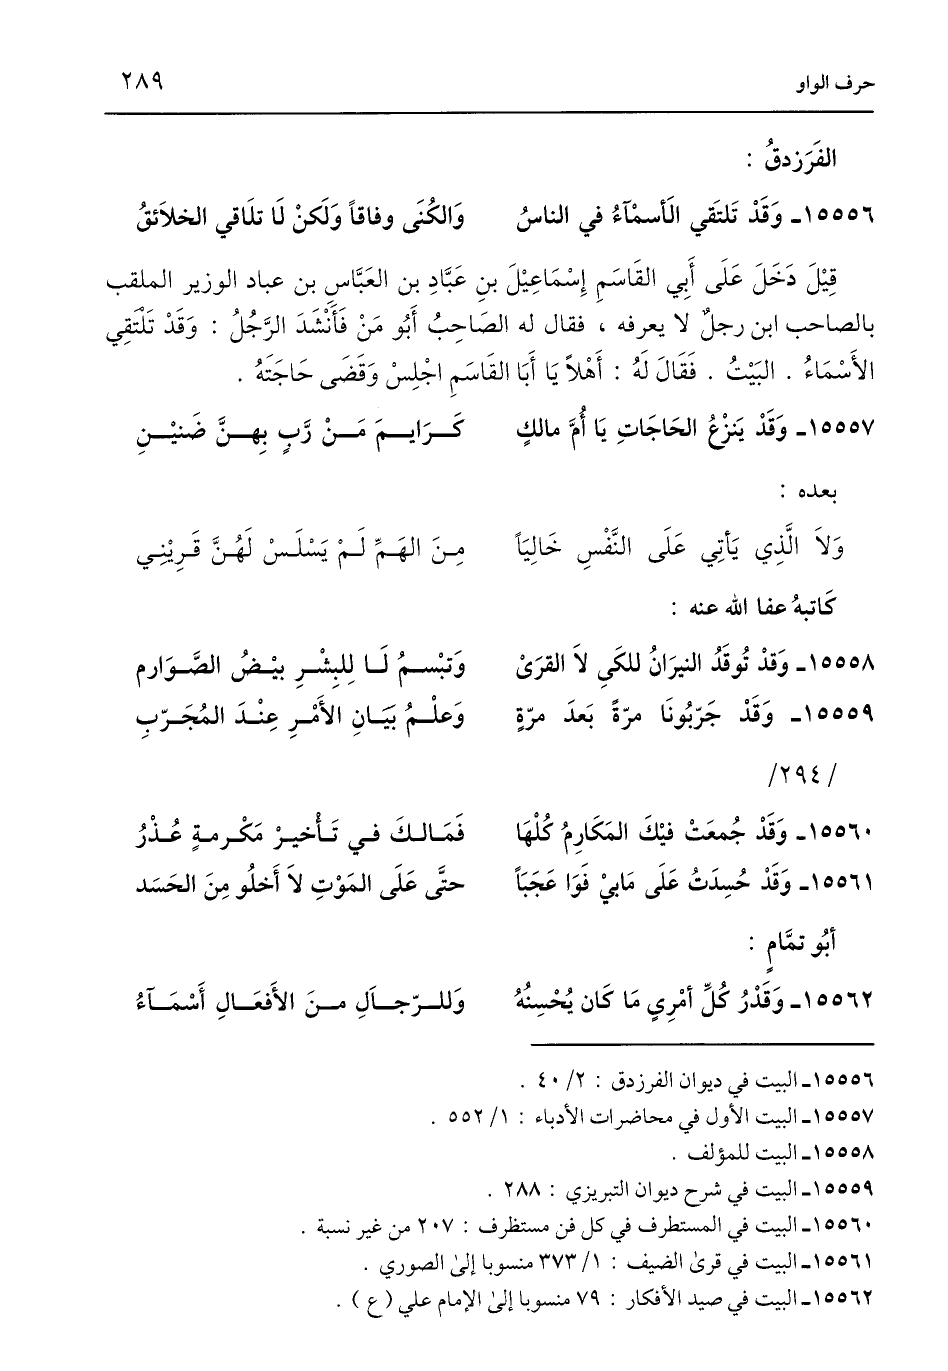 حرف الواو ٢٨٩
الفَرَزدقُ :
١٥٥٥٦ـ وَقَدْ تَلتَقي الَأسمْآءُ في الناسُ وَالكُنَى وفاقاً وَلَكنْ لَا تلَاقي الخلاَئقُ
قِيْلَ دَخَلَ عَلَى أَبِي القَاسَمِ إِسْمَاعِيْلَ بنِ عَبَّادِ بن العَبَّاسِ بن عباد الوزير الملقب
بالصاحب ابن رجلٌ لا يعرفه ، فقال له الصَاحِبُ أَبُو مَنْ فَأَنْشَدَ الرَّجُلُ : وَقَدْ تَلْتَقِي
الأَسْمَاءُ . البَيْتُ . فَقَالَ لَهُ : أَهْلاً يَا أَبَا القَاسَمِ اجْلِسْ وَقَضَى حَاجَتَهُ .
١٥٥٥٧ـ وَقَد يَنزْعُ الحَاجَاتِ يَا أُمَّ مالكٍ كَرَايمَ مَنْ رَّبٍ بِهنَّ ضَنيْنِ
بعده :
وَلاَ الَّذِي يَأتِي عَلَى النَّفْسِ خَالِيَاً مِنَ الهَمِّ لَمْ يَسْلَسْ لَهُنَّ قَرِيْنِي
كَاتبهُ عفا الله عنه :
١٥٥٥٨ـ وَقدْ تُوقَدُ النيرَانُ للكَي لاَ القرَىْ وَتَبْسمُ لَا لِلبِشْرِ بيْضُ الصَّوَارم
١٥٥٥٩ـ وَقَدْ جَرّبُونَا مرّةً بَعدَ مرّةٍ وَعلْمُ بَيَانِ الأَمْرِ عِنْدَ المُجَرّبِ
/٢٩٤/
١٥٥٦٠ـ وَقَدْ جُمعَتْ فيْكَ المَكَارِمُ كُلْهَا فَمَالكَ في تَأخيرْ مَكْرمةٍ عُذْرُ
١٥٥٦١ـ وَقَدْ حُسِدَتُ عَلَى مَابيْ فَوَا عَجَبَاً حتَّى عَلَى المَوْتِ لاَ أَخلُو مِنَ الحَسَد
أبُو تمَّامٍ :
١٥٥٦٢ـ وَقَدْرُ كُلِّ أمْرِيٍ مَا كَان يُحْسِنُهُ وَللرّجاَلِ منَ الأَفعَالِ أَسْمَآءُ
١٥٥٥٦ـ البيت في ديوان الفرزدق : ٢/ ٤٠ .
١٥٥٥٧ـ البيت الأول في محاضرات الأدباء : ١/ ٥٥٢ .
١٥٥٥٨ـ البيت للمؤلف .
١٥٥٥٩ـ البيت في شرح ديوان التبريزي : ٢٨٨ .
١٥٥٦٠ـ البيت في المستطرف في كل فن مستظرف : ٢٠٧ من غير نسبة .
١٥٥٦١ـ البيت في قرىٰ الضيف : ١/ ٣٧٣ منسوبا إلىٰ الصوري .
١٥٥٦٢ـ البيت في صيد الأفكار : ٧٩ منسوبا إلىٰ الإمام علي ( ع ) .